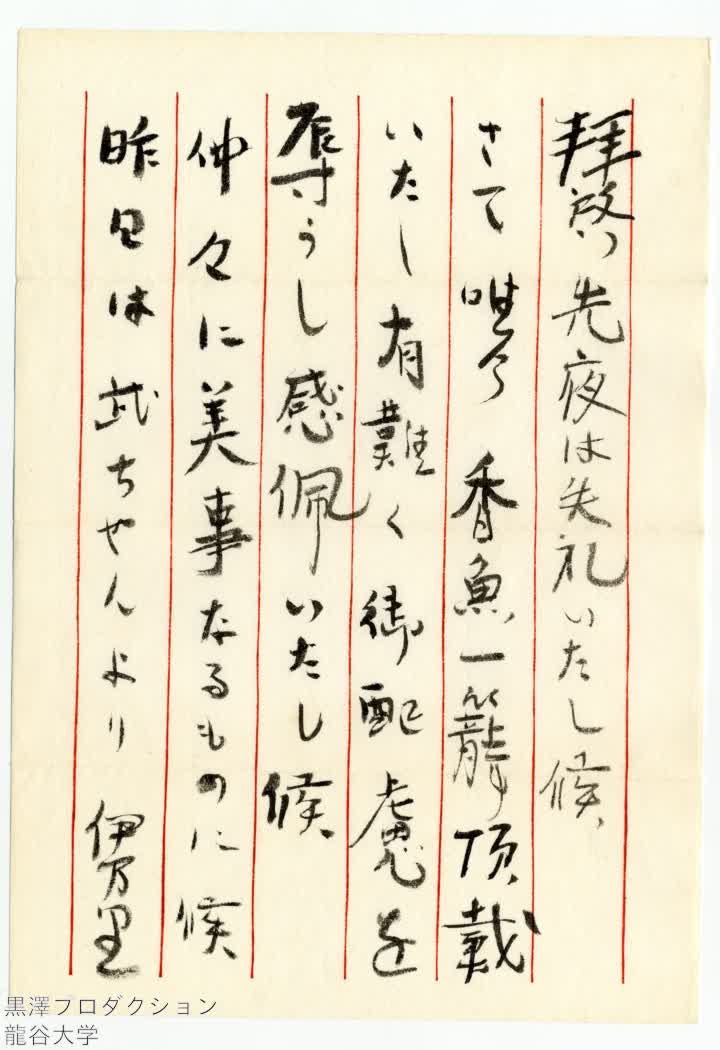 拝啓 先夜は失礼いたし候
さて 唯今 香魚一籠頂戴
いたし有難く 御配慮を
辱うし感佩いたし候
仲々に美事なるものに候
昨日は武ちやんより 伊万里
黒澤プロダクション
龍谷大学